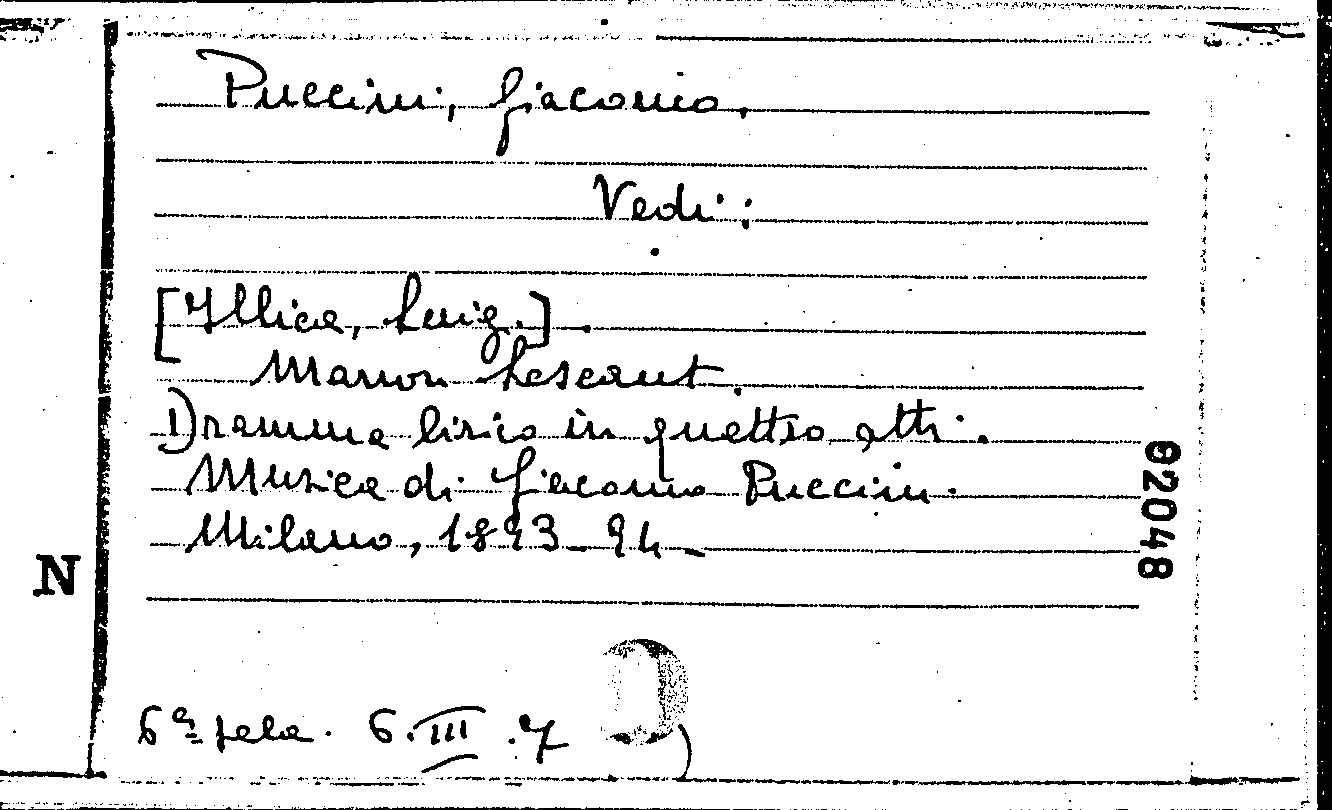 Puccini, Giacomo.
Vedi:
[Illica, Luig.].
Manon Lescaut.
Dramma lirico in quattro atti.
Musica di Giacomo Puccini.
Milano, 1893-94-
02048
N
6ª sala. 6.III.7